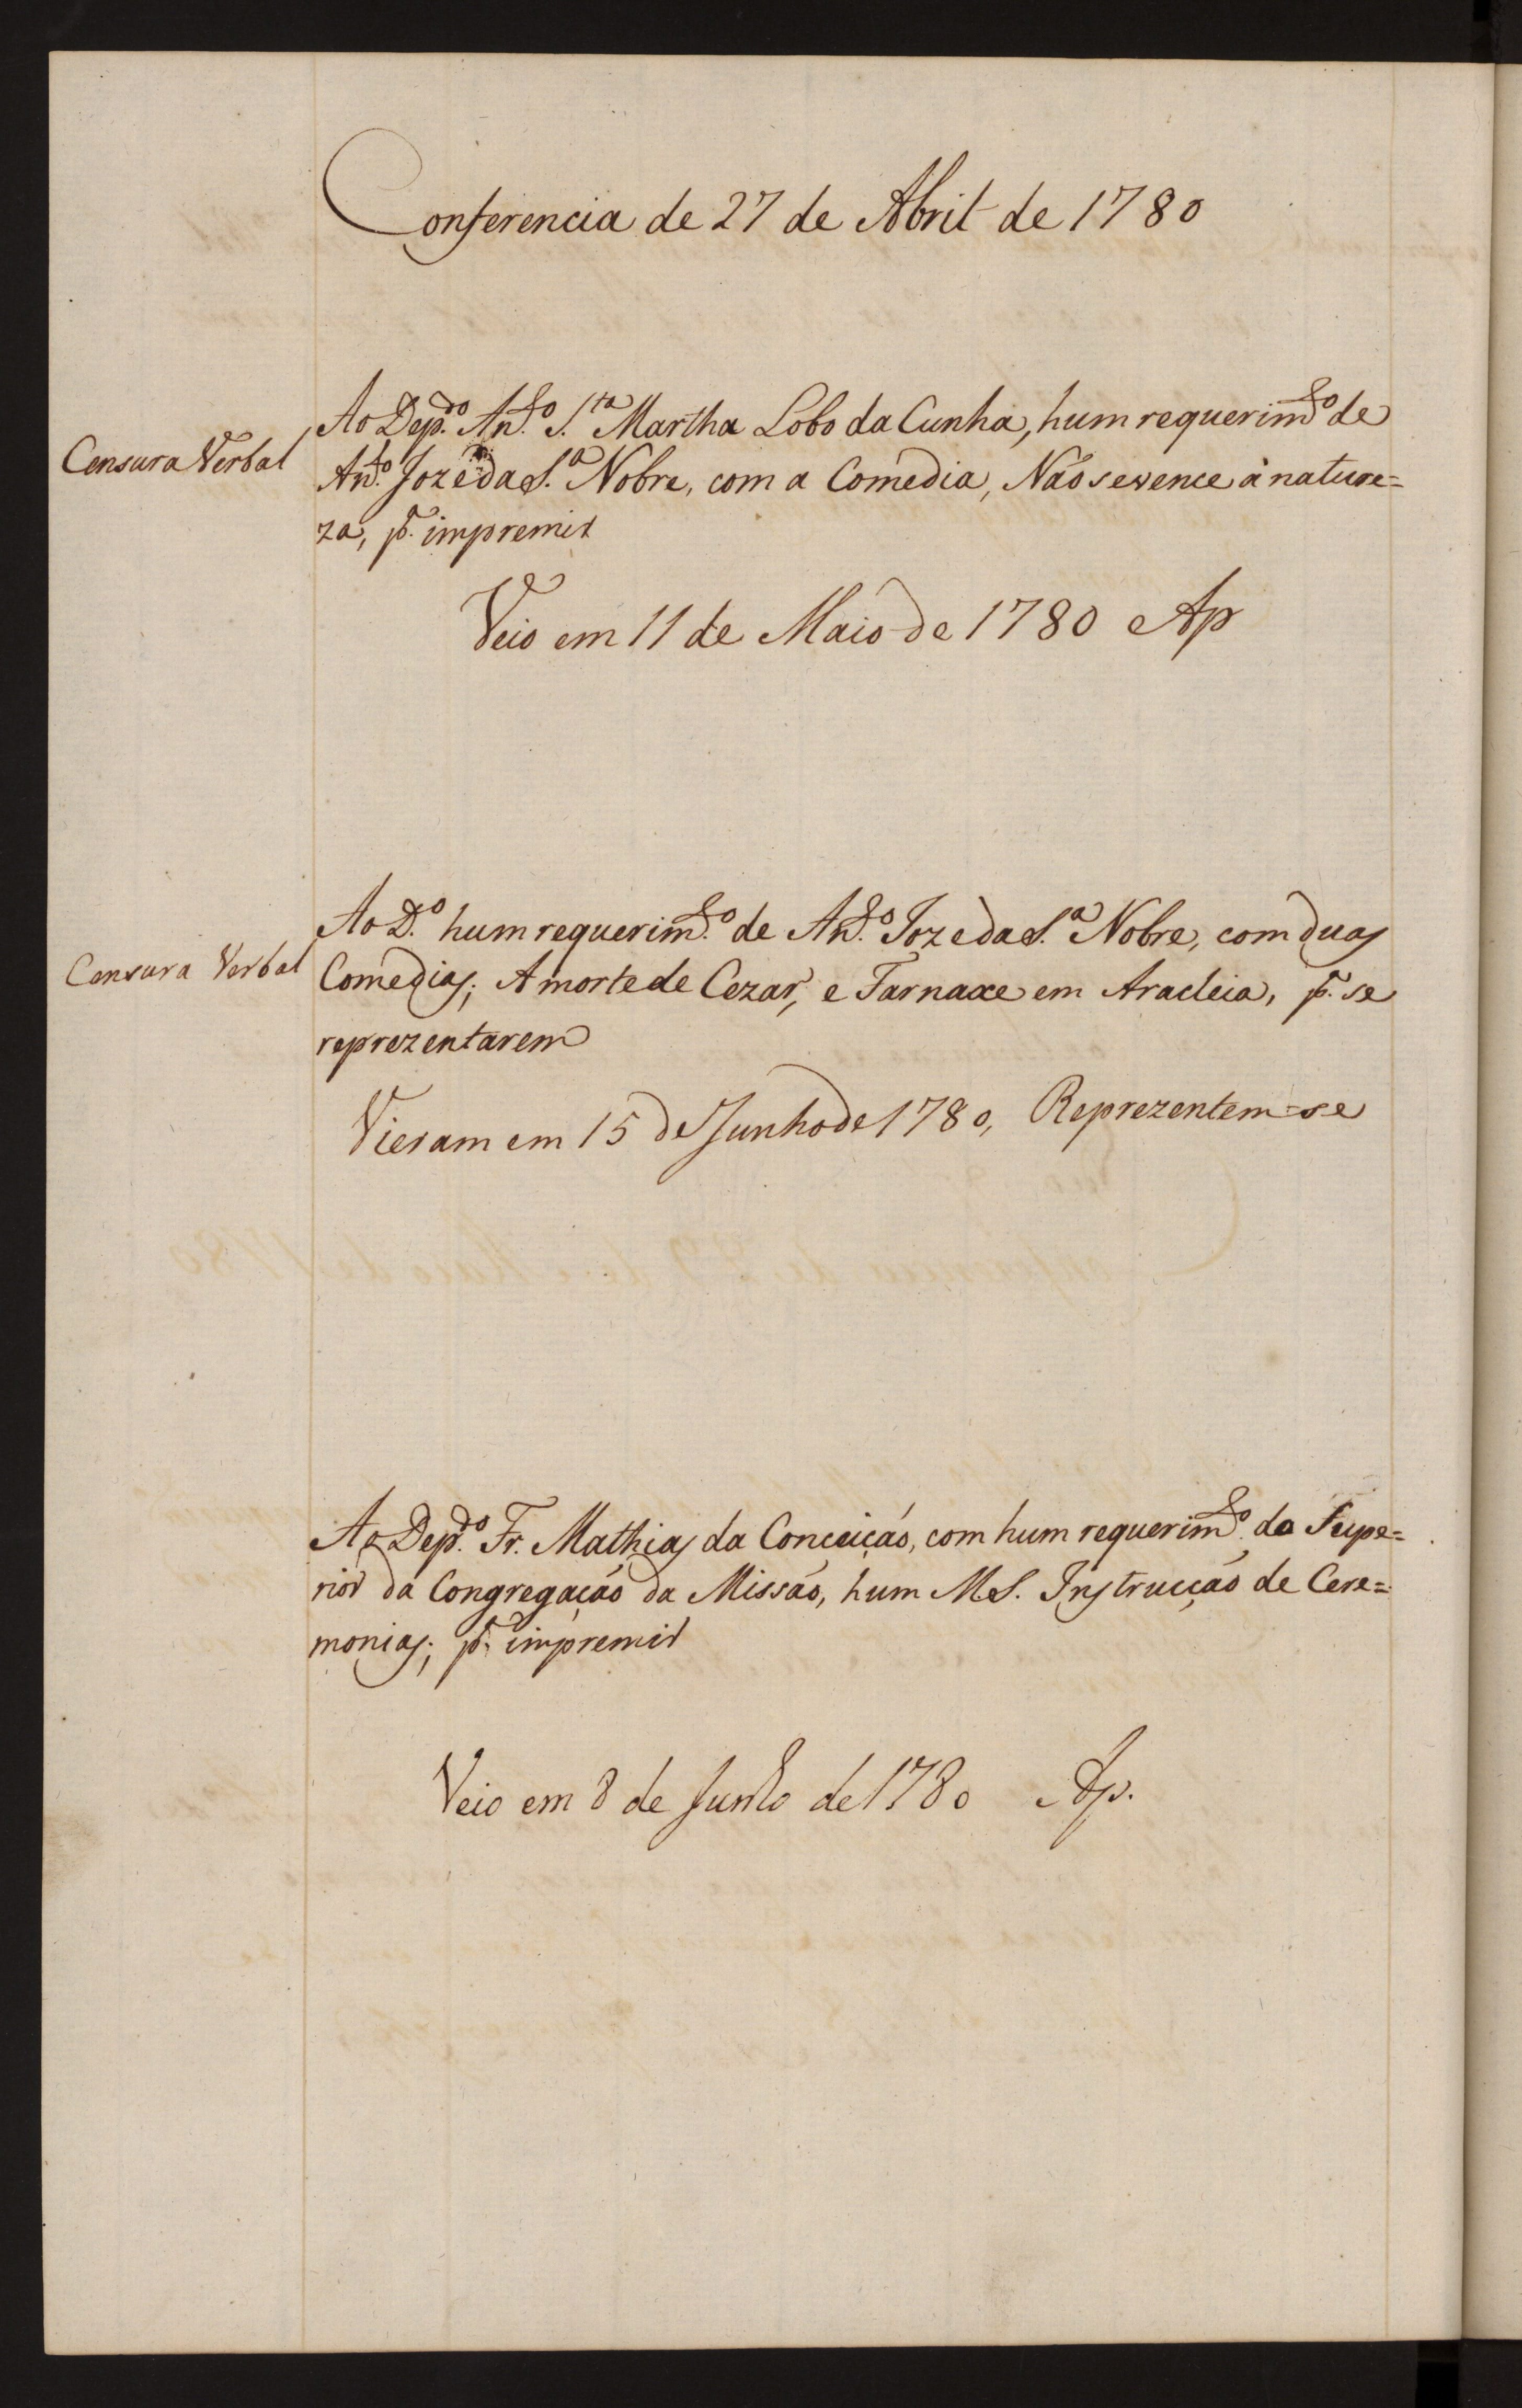 Conferencia de 27 de Abril de 1780
Ao Dep.do An.to S.ta Martha Lobo da Cunha, hum requerim.to de
Censura Verbal
An.to Joze da S.a Nobre, com a Comedia, Não se vence à nature=
za, p.a impremir
Veio em 11 de Maio de 1780 Ap
Ao D.o hum requerim.to de An.to Joze da S.a Nobre, com duas
Censura Verbal
Comedias; A morte de Cezar, e Farnaxe em Aracleia, p.a se
reprezentarem
Vieram em 15 de Junho de 1780, Reprezentem=se
Ao Dep.do Fr. Mathias da Conceição, com hum requerim.to do Supe=
rior da Congregação da Missão, hum MS. Instrucção de Cere=
monias; p.a impremir
Veio em 8 de Junho de 1780 Ap.